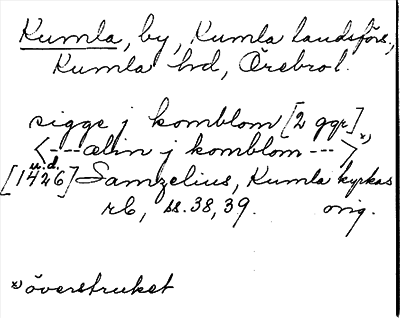 Kumla, by, Kumla landsförs.,
Kumla hd, Örebro l.
sigge j komblom [2 ggr]
<---elin j komblom --->*)
u.d.
[1426] Samzelius, Kumla kyrkas
rb, ss. 38, 39. orig.
*) överstruket